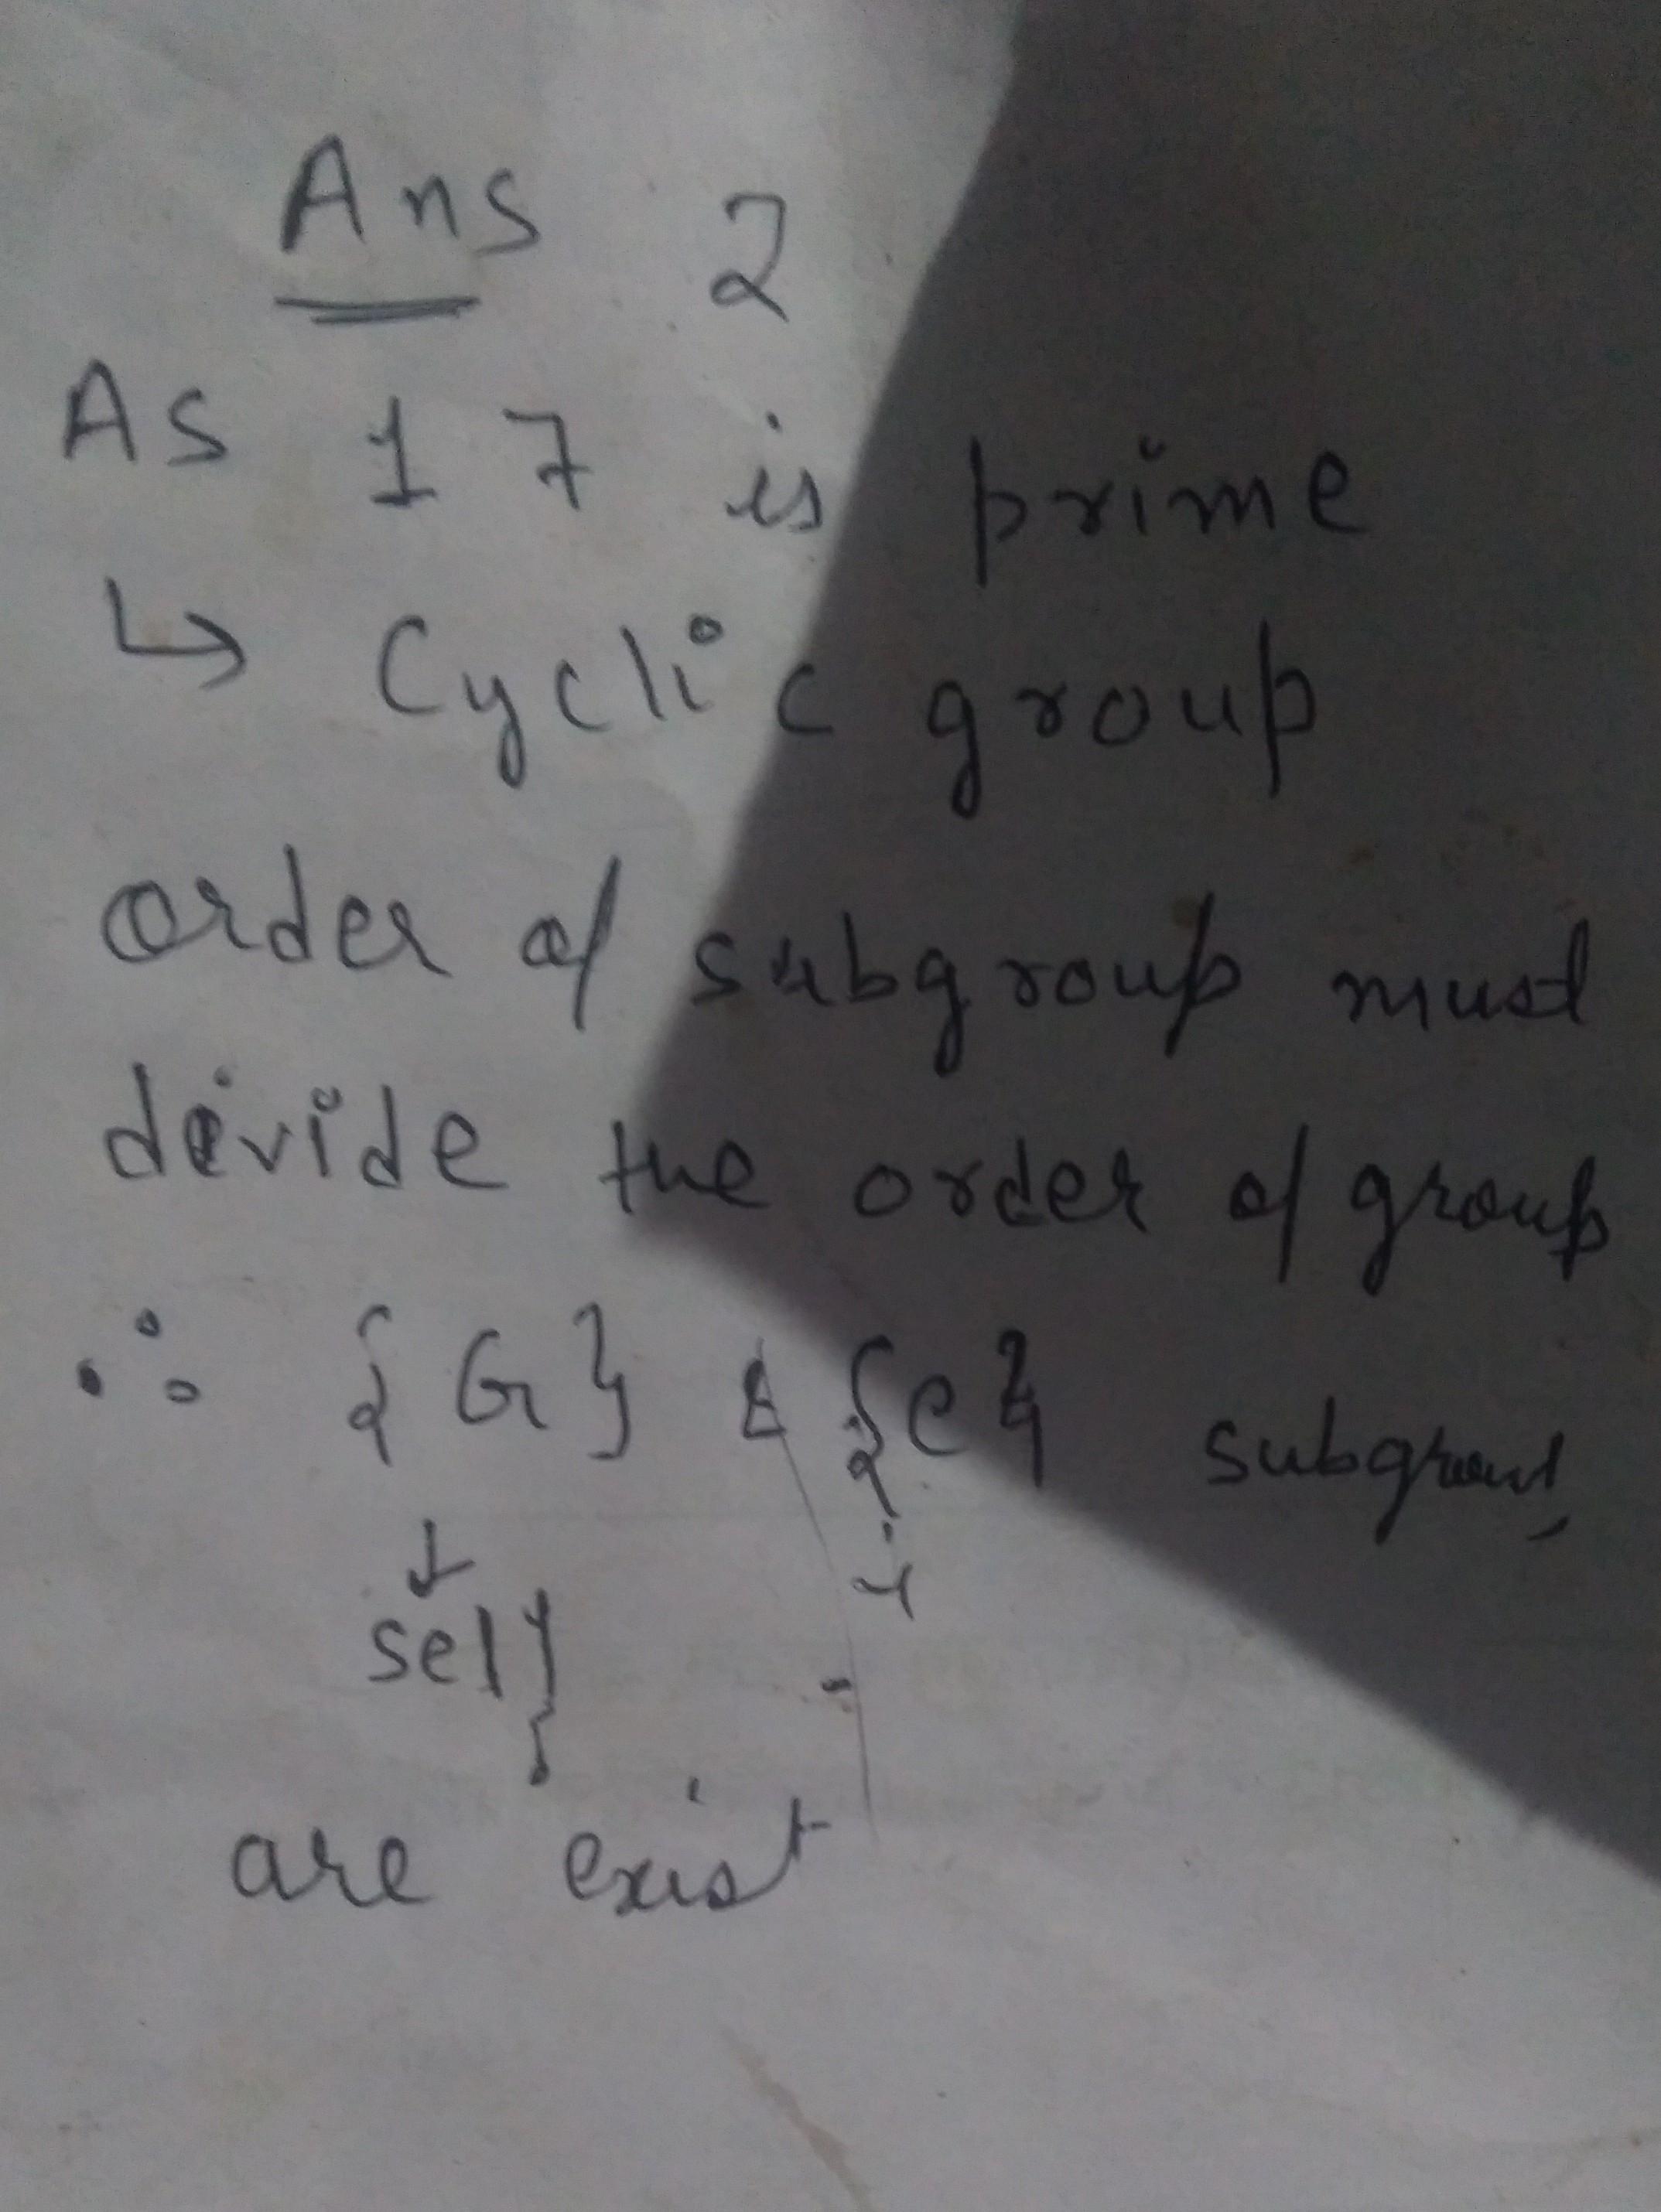 Ans 2
As 17 is prime
↳ Cyclic group
order of subgroup must
divide the order of group
∴ {G} & {e} subgroup
↓
self
are exist